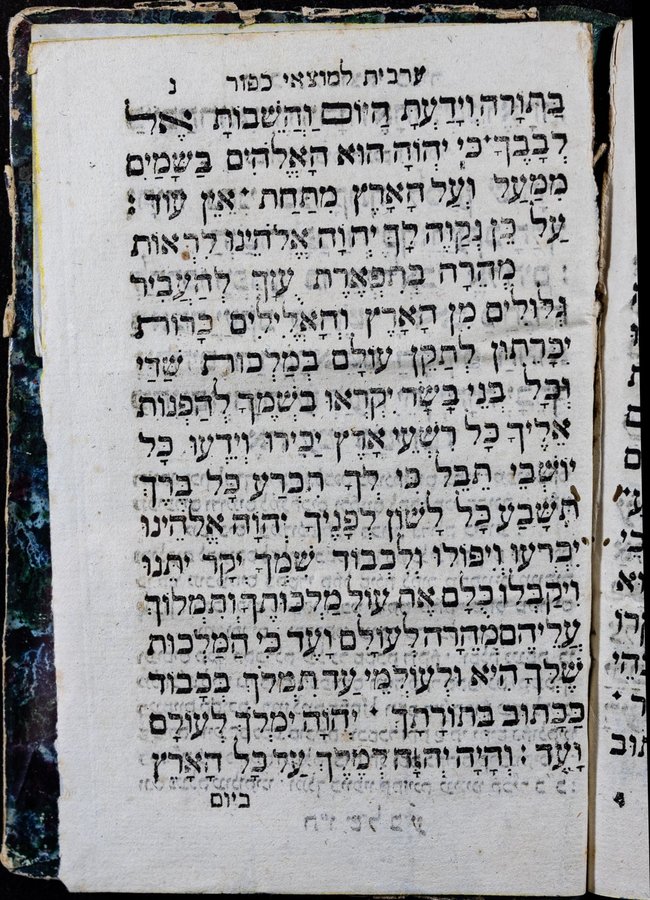 ערבית למוצאי כפור נ
בַּתּוֹרָה וְיָדַעְתָּ הַיּוֹם וַהֲשֵׁבוֹתָ אֶל
לְבָבֶךָ כִּי יְהוָֹה הוּא הָאֱלֹהִים בַּשָּׁמַיִם
מִמַּעַל וְעַל הָאָרֶץ מִתַּחַת אֵין עוֹד :
עַל כֵּן נְקַוֶּה לָךְ יְהוָֹה אֱלֹהֵינוּ לִרְאוֹת
מְהֵרָה בְּתִפְאֶרֶת עֻזָּךְ לְהַעֲבִיר
גִּלּוּלִים מִן הָאָרֶץ וְהָאֱלִילִים כָּרוֹת
יִכָּרֵתוּן לְתַקֵּן עוֹלָם בְּמַלְכוּת שַׁדַּי
וְכָל בְּנֵי בָשָׂר יִקְרְאוּ בִשְׁמֶךָ לְהַפְנוֹת
אֵלֶיךָ כָּל רִשְׁעֵי אָרֶץ יַכִּירוּ וְיֵדְעוּ כָּל
יוֹשְׁבֵי תֵבֵל כִּי לְךָ תִּכְרַע כָּל בֶּרֶךְ
תִּשָּׁבַע כָּל לָשׁוֹן לְפָנֶיךָ יְהוָֹה אֱלֹהֵינוּ
יִכְרְעוּ וְיִפּוֹלוּ וְלִכְבוֹד שִׁמְךָ יְקָר יִתֵּנוּ
וִיקַבְּלוּ כֻלָּם אֶת עוֹל מַלְכוּתֶךָ וְתִמְלוֹךְ
עֲלֵיהֶם מְהֵרָה לְעוֹלָם וָעֶד כִּי הַמַּלְכוּת
שֶׁלְּךָ הִיא וּלְעוֹלְמֵי עַד תִּמְלֹךְ בְּכָבוֹד
כַּכָּתוּב בְּתוֹרָתָךְ יְהוָֹה יִמְלֹךְ לְעוֹלָם
וָעֶד : וְהָיָה יְהוָֹה לְמֶלֶךְ עַל כָּל הָאָרֶץ
ביום